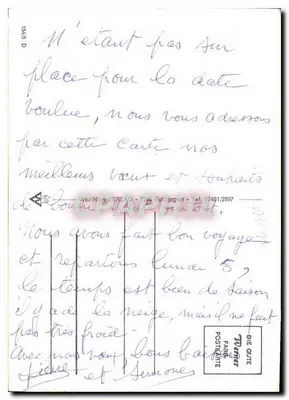 154/5 D
N'étant pas sur
place pour la date
voulue, nous vous adressons
par cette carte nos
meilleurs vœux et souhaits
de bonne
Nous avons fait bon voyage
et repartons lundi 5,
le temps est bien de saison
il y a de la neige, mais il ne fait
pas très froid.
Avec nos vœux bons baisers
et Simones
DIE GUTE
Werner
FARB
POSTKARTE